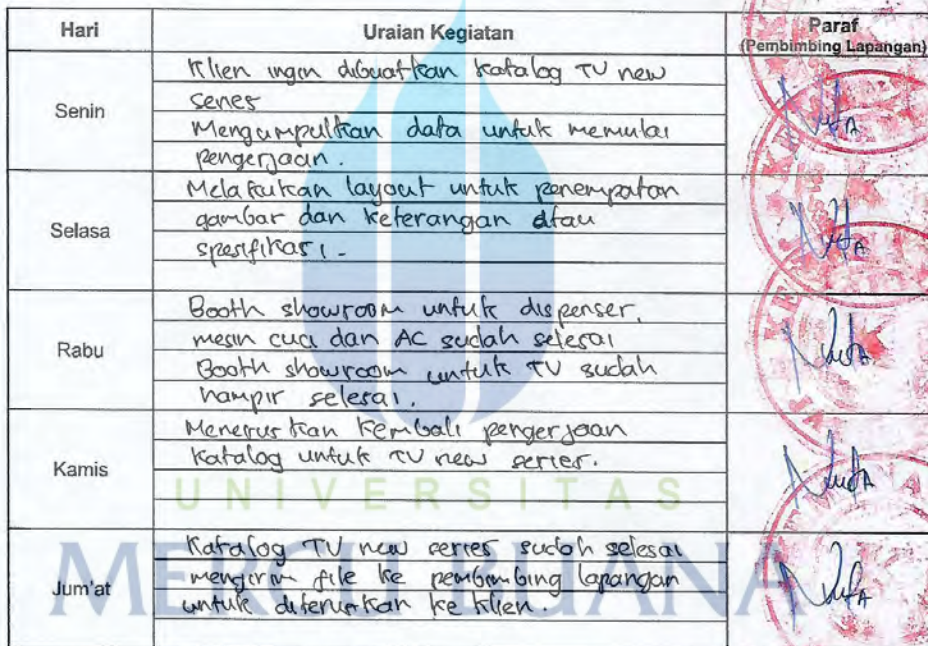 Hari Uraian Kegiatan Paraf
(Pembimbing Lapangan)
Senin
Klien ingin dibuatkan katalog TV new
series
Mengumpulkan data untuk memulai
pengerjaan.
Selasa
Melakukan layout untuk penempatan
gambar dan keterangan atau
spesifikasi.
Rabu
Booth showroom untuk dispenser,
mesin cuci dan AC sudah selesai
Booth showroom untuk TV sudah
hampir selesai.
Kamis
Meneruskan kembali pengerjaan
katalog untuk TV new series.
UNIVERSITAS
MERCU BUANA
Jum'at
Katalog TV new series sudah selesai
mengirim file ke pembimbing lapangan
untuk diteruskan ke klien.